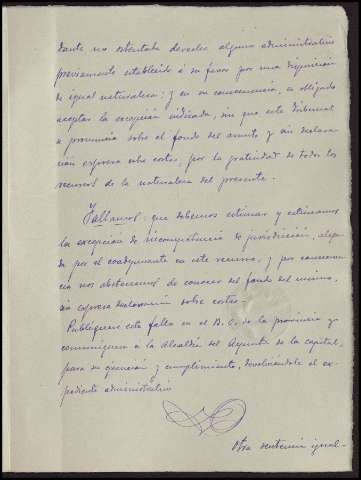 dante no ostentaba derecho alguno administrativo
previamente establecido á su favor por una disposición
de igual naturaleza; y en su consecuencia, es obligado
aceptar la excepción indicada, sin que este Tribunal
pronuncie sobre el fondo del asunto y sin declara-
ción expresa sobre costas, por la gratuidad de todos los
recursos de la naturaleza del presente.
Fallamos: que debemos estimar y estimamos
la excepción de incompetencia de jurisdicción, alega-
da por el coadyuvante en este recurso, y por consecuen-
cia nos abstenemos de conocer del fondo del mismo,
sin expresa declaración sobre costas.
Publíquese este fallo en el B. O. de la provincia y
comuníquese á la Alcaldía del Ayunto de la capital,
para su ejecución y cumplimiento, devolviéndole el ex-
pediente administrativo
Otra sentencia igual-